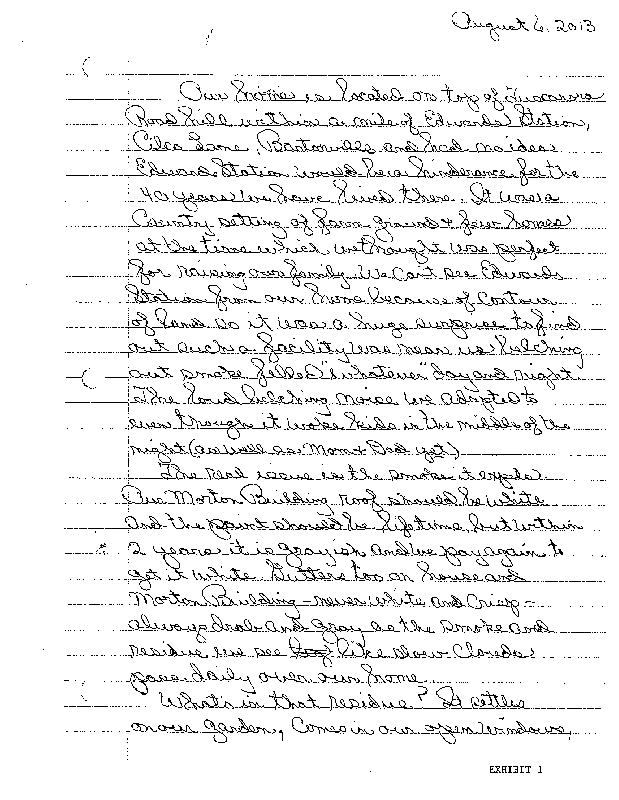 August 6, 2013
Our home is located on top of Tuscarora
Road hill within a mile of Edwards Station,
Cilco Lane, Bartonville and had no idea
Edwards Station would be a hinderance for the
40 years we have lived there. It was a
Country setting of farm ground & few homes
at the time which we thought was perfect
for raising our family. We can't see Edwards
Station from our home because of contour
of land so it was a huge surprise to find
out such a facility was near us belching
out smoke filled "whatever" day and night.
The loud belching noise we adapted to
even though it woke kids in the middle of the
night (as well as Mom & Dad yet)
The real issue is the smoke it expels.
Our Morton Building roof should be white
and the paint should be lifetime but within
2 years it is grayish and we pay again to
get it white. Gutters too on house and
Morton Building - never white and crisp -
always drab and gray as the smoke and
residue we see like slow clouds
pass daily over our home
What's in that residue? It settles
on our garden, comes in our open windows,
EXHIBIT 1